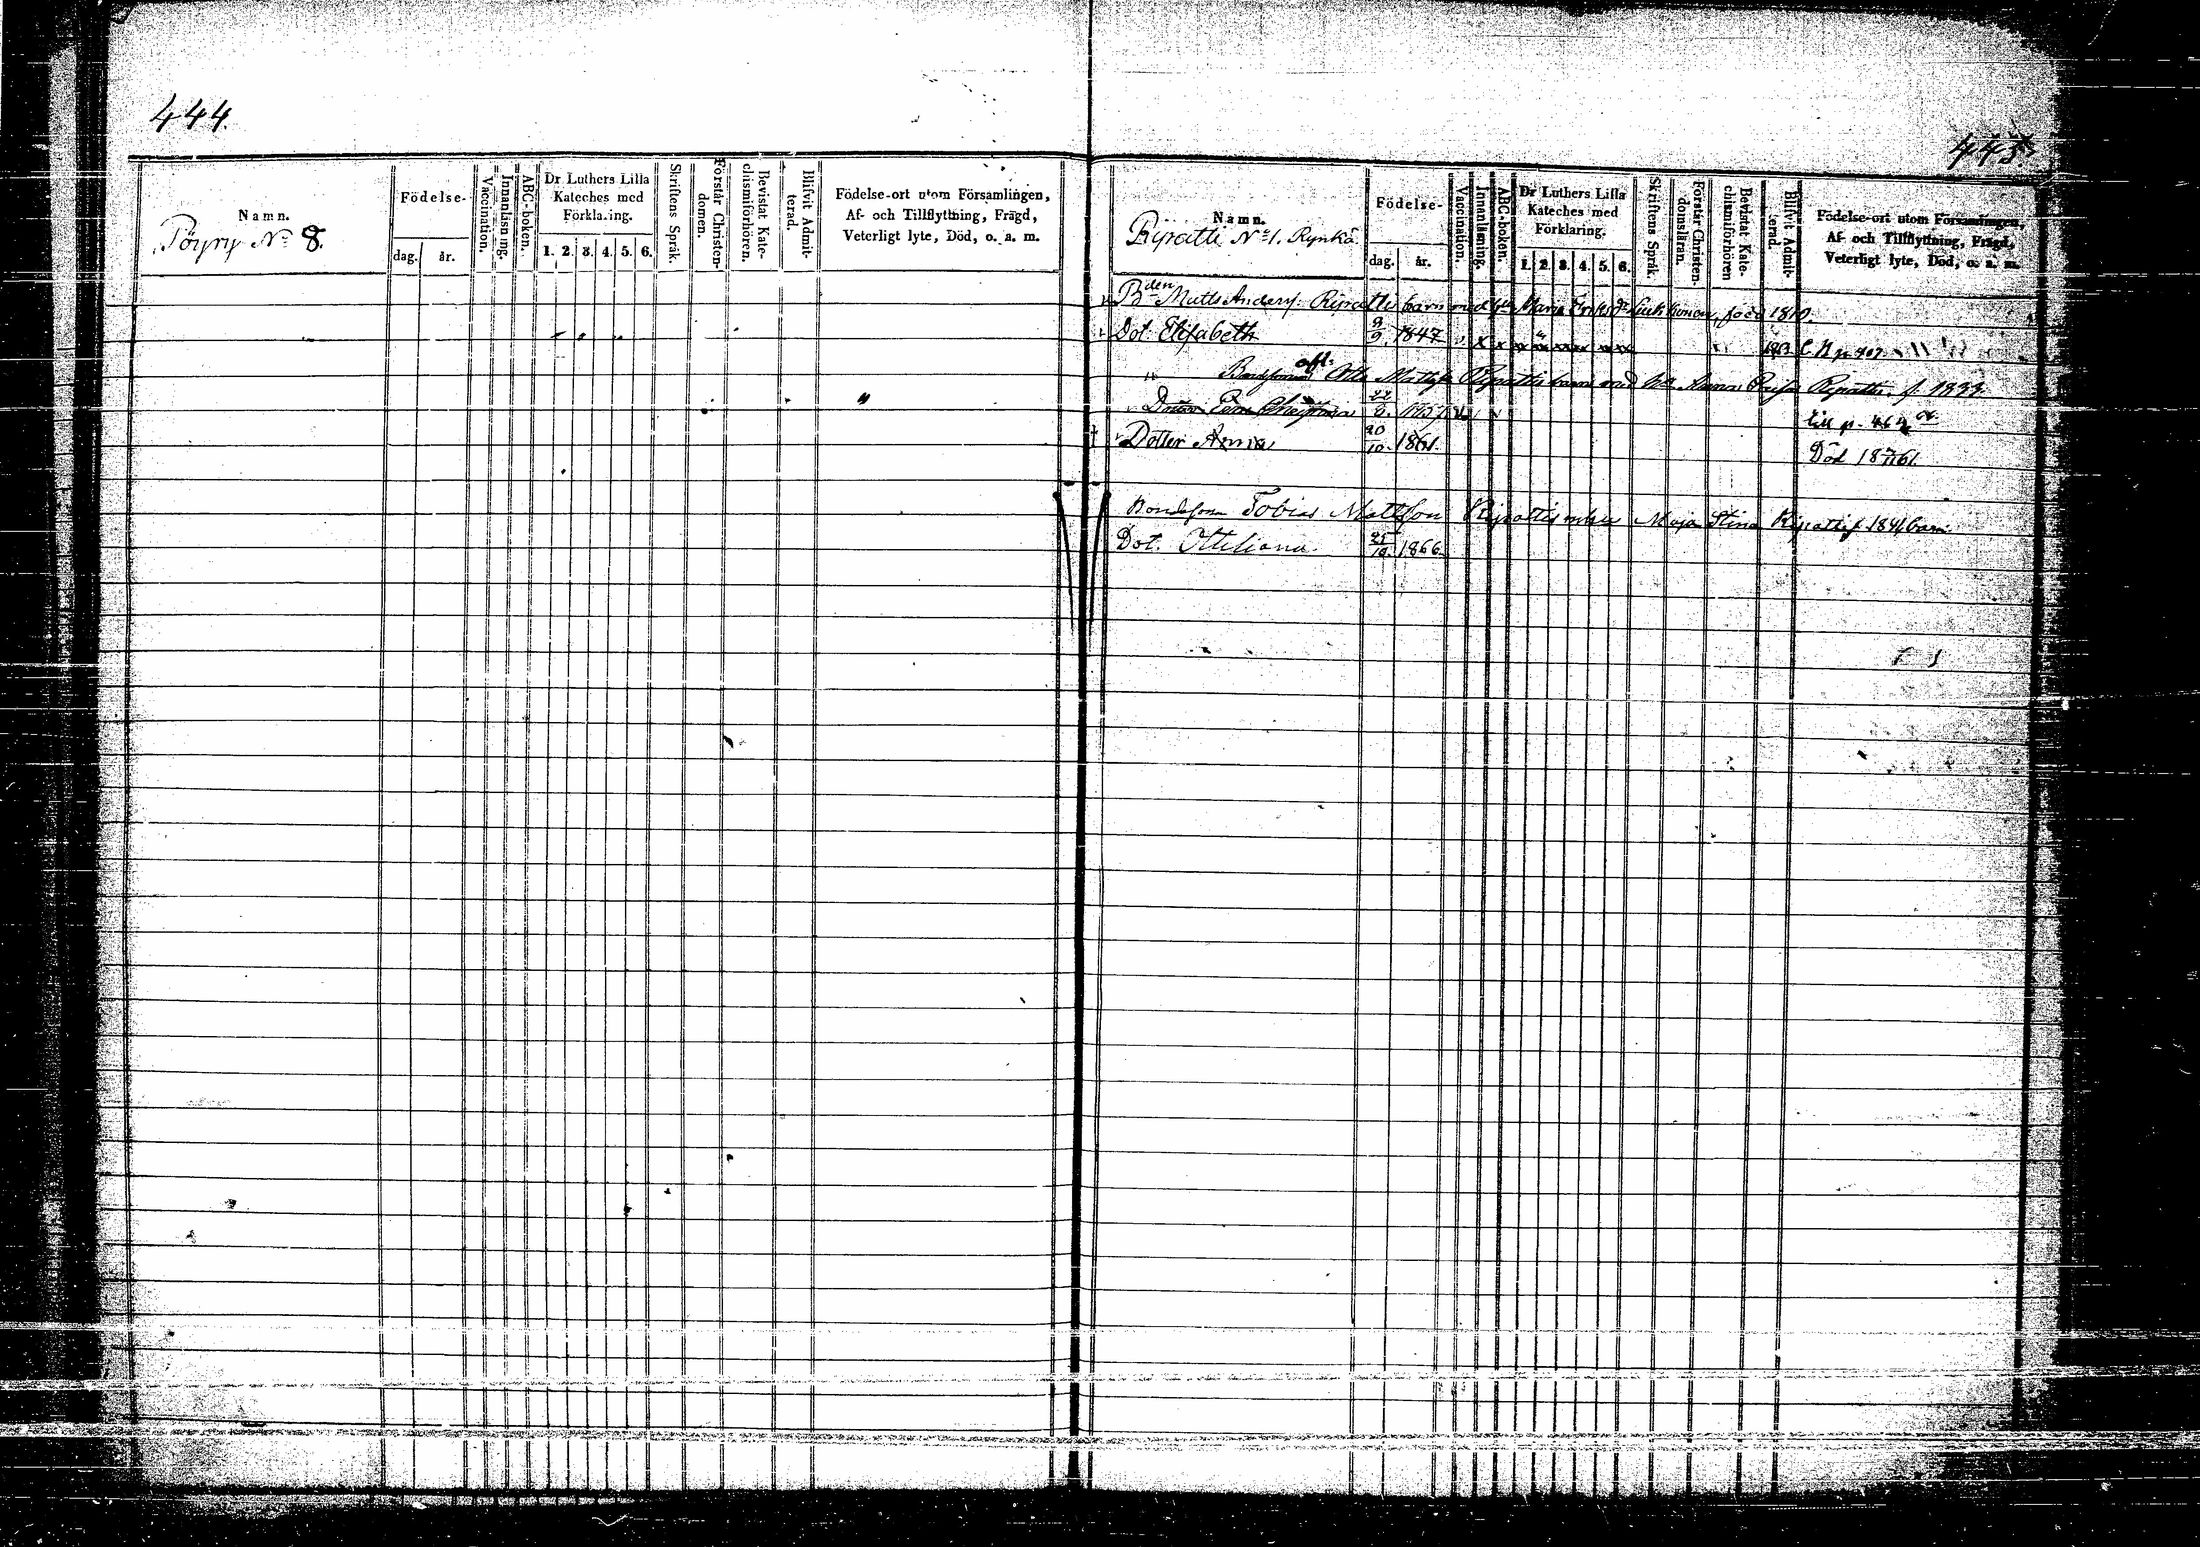 444.
Namn.
Pöyry No 8.
Födelse-
dag. år.
Vaccination.
Innanläsning.
ABC-boken.
Dr Luthers Lilla
Kateches med
Förklaring.
1. 2. 3. 4. 5. 6.
Skriftens Språk.
Förstår Christen-
domen.
Bevistat Kate-
chismiförhören.
Blifvit Admit-
terad.
Födelse-ort utom Församlingen,
Af- och Tillflyttning, Frägd,
Veterligt lyte, Död, o. a. m.
445
Namn.
Ripatti No 1. Rynkä
Födelse-
dag. år.
Vaccination.
Innanläsning.
ABC-boken.
Dr Luthers Lilla
Kateches med
Förklaring.
1. 2. 3. 4. 5. 6.
Skriftens Språk.
Förstår Christen-
domsläran.
Bevistat Kate-
chismiförhören
Blifvit Admit-
terad.
Födelse-ort utom Församlingen,
Af- och Tillflyttning, Frägd,
Veterligt lyte, Död, o. a. m.
Bden Matts Anders: Ripattis barn med Maria född 1810.
Dot. Elisabeth 9/9. 1847
afl. Otto Matts Ripattis barn med Anna Ripatti f. 1833.
Dotter 22/6. till p. 464
† Dotter Anna 20/10. 1861. Död 18 61.
Bondeson Tobias Mattsson Ripattis Maja Stina Ripatti f 1841 barn
Dot. Otteliana. 25/10. 1866.